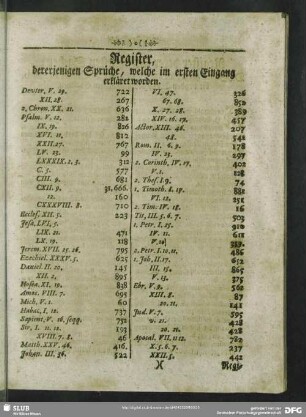 Register,
dererjenigen Sprüche, welche im ersten Eingang
erkläret worden.
Deuter. V. 29. 722
XII, 28. 267
2. Chron. XX, 21. 636
Psalm. V. 12. 282
IX. 19. 826
XVI. 11. 812
XXII. 27. 767
LV. 23. 99
LXXXIX. 2. 3. 312
C. 3. 577
CIII. 9. 681
CXII. 9. 31. 666.
12. 160
CXXXVIII. 8. 710
Eccles. XII. 3. 223
Jesa. LVI, 5.
LIX. 21. 471
LX. 19. 118
Jerem. XVII. 25. 26. 795
Ezechiel. XXXV. 5. 625
Daniel. II. 20. 145
XII. 2. 895
Hosea. XI. 19. 838
Amos. VIII. 7. 695
Mich. V. 1. 60
Habac. I, 12. 737
Sapient. V. 16. seqq. 751
Sir. I. 11. 12. 193
XVIII. 7. 8. 46
Matth. XXV. 46. 416.
Johan. III. 36. 522
VI. 47. 326
67. 68. 852
X. 27. 28. 389
XIV. 16. 17. 457
Actor. XIII. 46. 207
48. 542
Rom. II. 6. 9. 178
IV. 25. 297
2. Corinth. IV. 17. 402
V. 1. 128
2. Thess. I. 9. 74
1. Timoth. I. 19. 881
VI. 12. 251
2. Tim. IV. 18. 16
Tit. III. 5. 6. 7. 503
1. Petr. I, 25. 910
IV. 11. 611
2. Petr. I. 10. 11. 486
1. Joh. II. 17. 652
III. 15. 865
V. 13. 375
Ebr. V. 9. 562
XIII, 8. 87
20. 21. 141
Jud. V. 7. 595
v. 21. 428
20. 21. 428
Apocal. VII, 11 12. 782
X. 5. 6. 7. 237
XXII. 5. 442
X
Regis-
SLUB